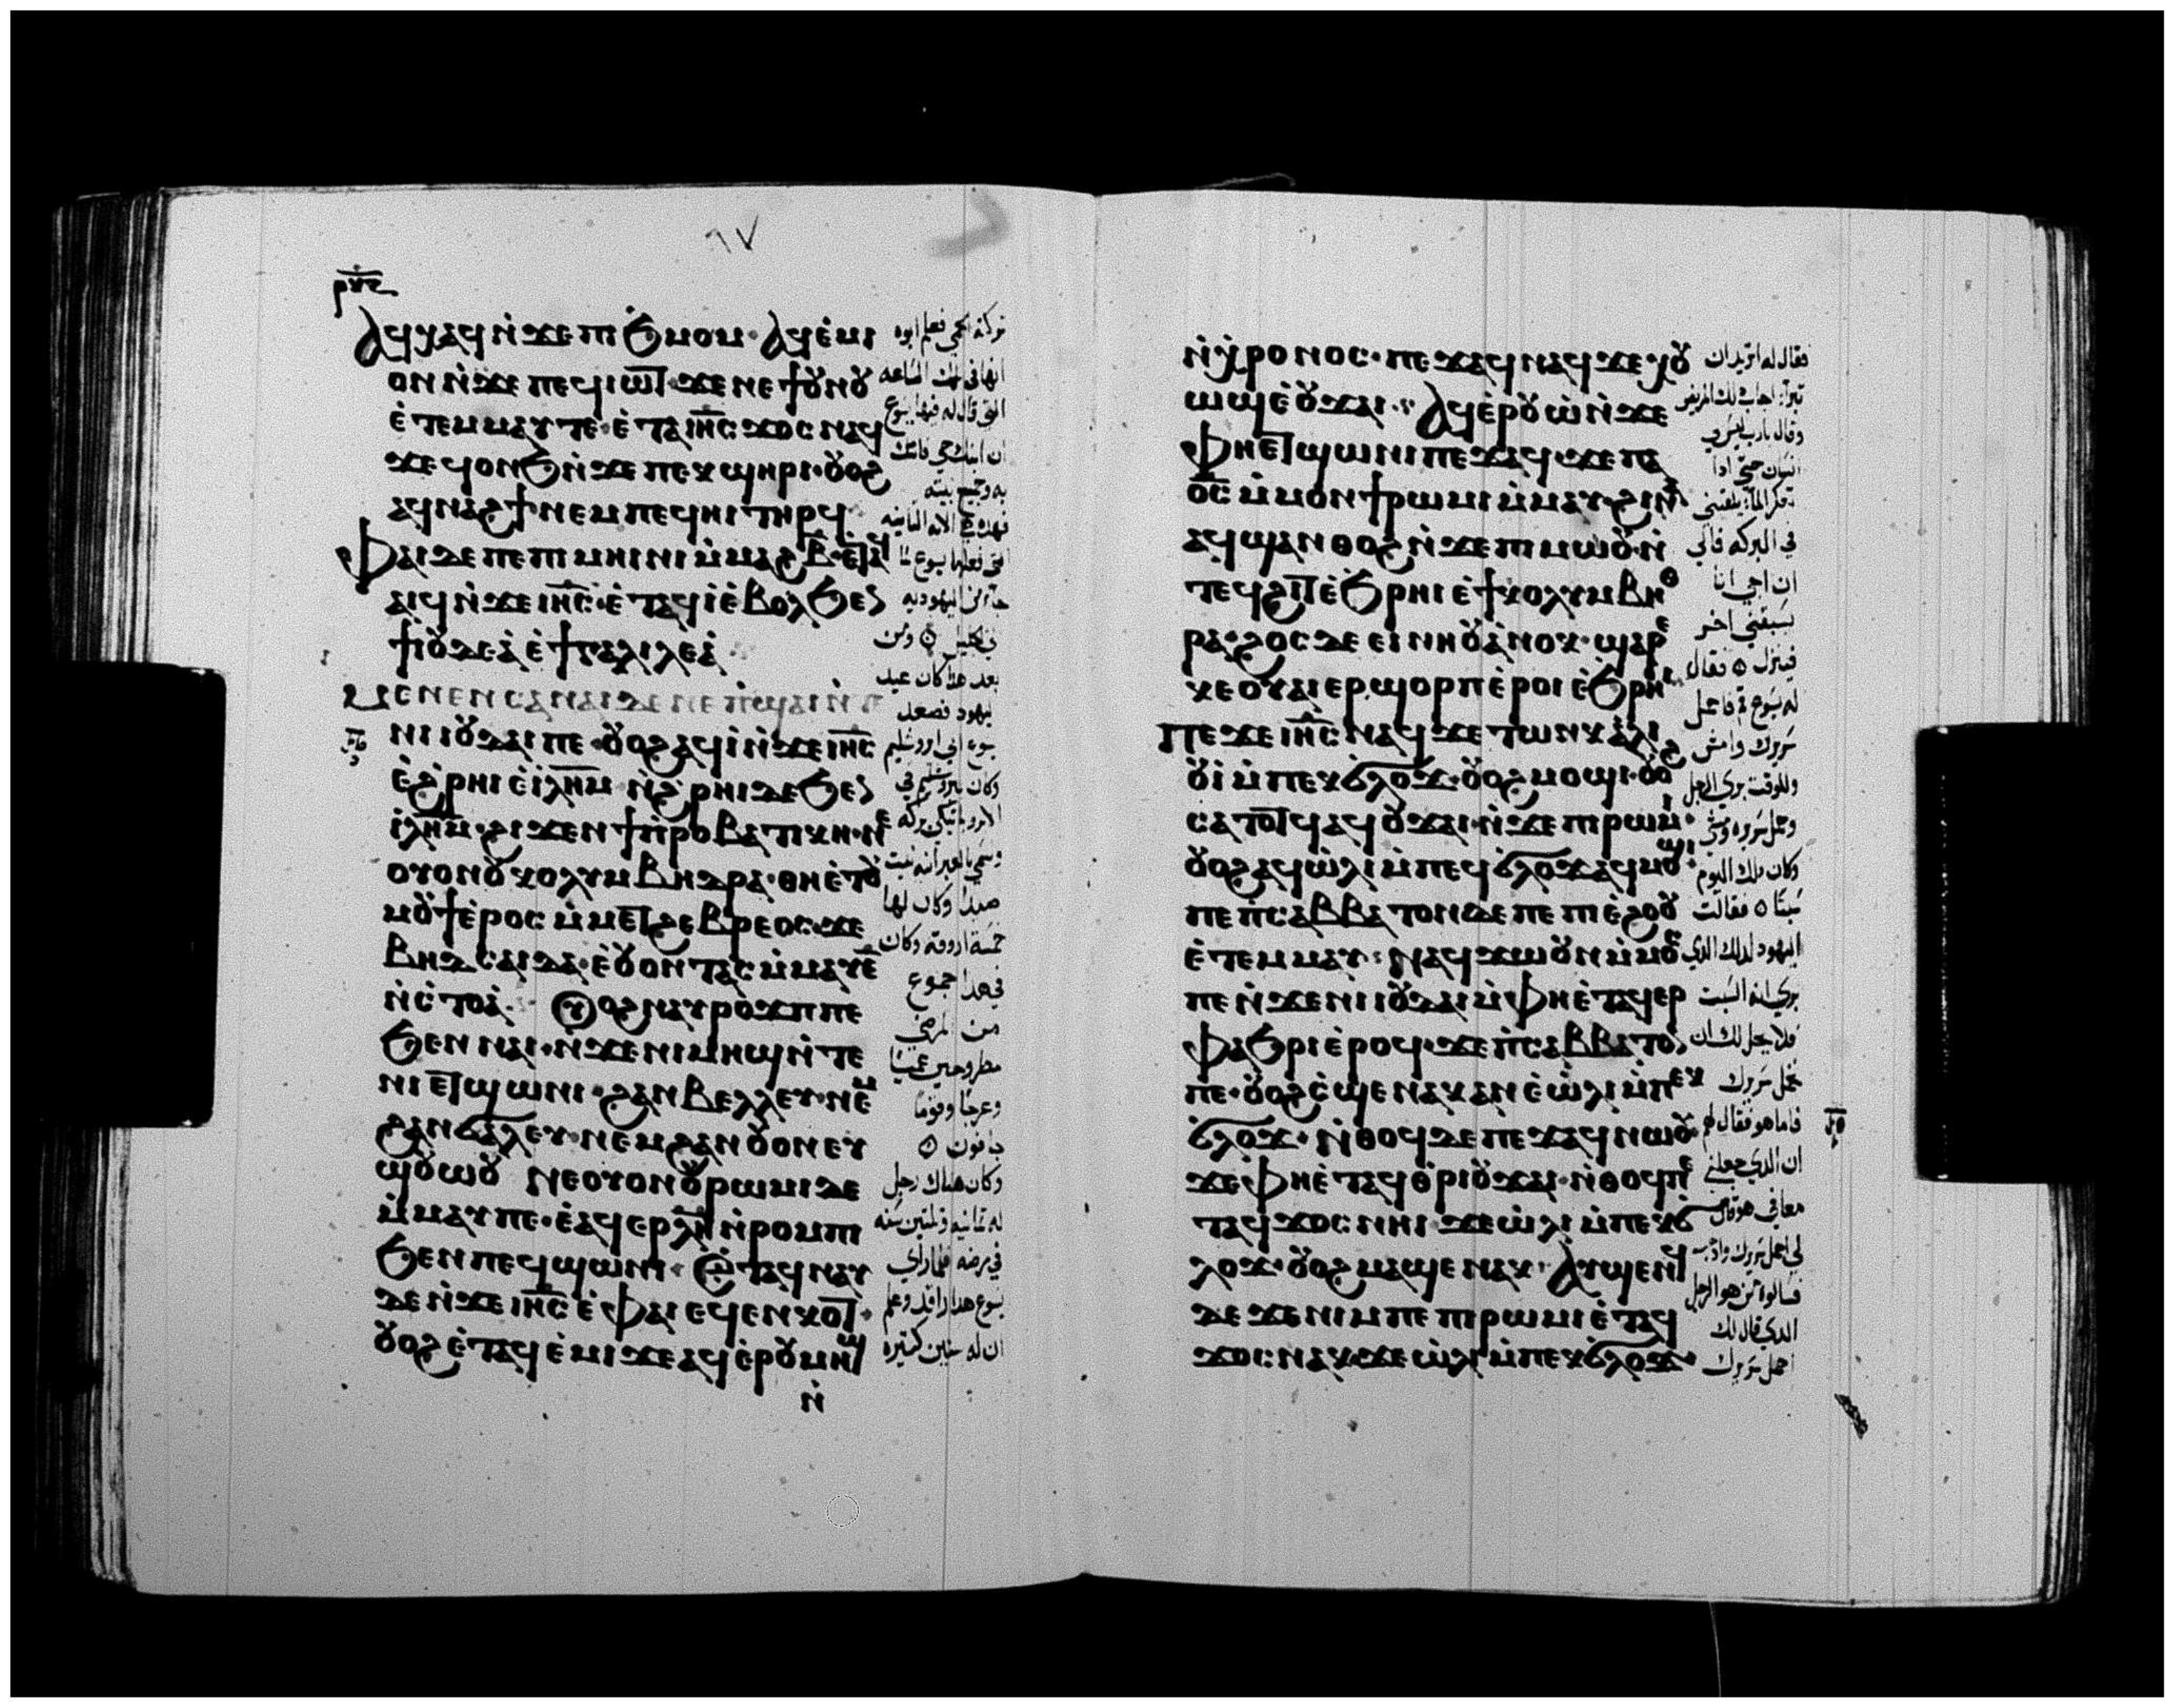 ⲁϥⲭⲁϥ ⲛ̇ϫⲉ ⲡⲓϧⲙⲟⲙ· ⲁϥⲉ̇ⲙⲓ
ⲟⲛ ⲛ̇ϫⲉ ⲡⲉϥⲓⲱⲧ· ϫⲉ ⲛⲉ ϯⲟⲩⲛⲟⲩ
ⲉ̇ⲧⲉⲙⲙⲁⲩ ⲧⲉ· ⲉ̇ⲧⲁ ⲓⲏ̅ⲥ̅ ϫⲟⲥ ⲛⲁϥ
ϫⲉ ϥⲟⲛϧ ⲛ̇ϫⲉ ⲡⲉⲕϣⲏⲣⲓ· ⲟⲩⲟϩ
ⲁϥⲛⲁϩϯ ⲛⲉⲙ ⲡⲉϥⲏⲓ ⲧⲏⲣϥ·
ⲫⲁⲓ ⲇⲉ ⲡⲉ ⲡⲓⲙⲏⲓⲛⲓ ⲙ̇ⲙⲁϩ ⲃ̅· ⲉⲧⲁϥ
ⲁⲓϥ ⲛ̇ϫⲉ ⲓⲏ̅ⲥ̅· ⲉ̇ⲧⲁϥⲓ̇ ⲉ̇ⲃⲟⲗ ϧⲉⲛ
ϯⲓⲟⲩⲇⲉⲁ̇ ⲉ̇ ϯⲅⲁⲗⲓⲗⲉⲁ̇
ⲙⲉⲛⲉⲛⲥⲁ ⲛⲁⲓ ⲇⲉ ⲛⲉ ⲡ̇ϣⲁⲓ ⲛ̇ⲧⲉ
ⲛⲓⲓⲟⲩⲇⲁⲓ ⲡⲉ· ⲟⲩⲟϩ ⲁϥⲓ̇ ⲛ̇ϫⲉ ⲓⲏ̅ⲥ̅
ⲉ̇ϩ̇ⲣⲏⲓ ⲉ̇ⲓⲗⲏ̅ⲙ̅ ⲛ̇ϩ̇ⲣⲏⲓ ⲇⲉ ϧⲉⲛ
ⲓⲗⲏ̅ⲙ̅· ϩⲓϫⲉⲛ ϯⲡ̇ⲣⲟⲃⲁⲧⲓⲕⲏ· ⲛⲉ
ⲟⲩⲟⲛ ⲟⲩⲕⲟⲗⲩⲙⲃⲏⲇⲣⲁ· ⲑⲏ ⲉ̇ⲧⲟⲩ
ⲙⲟⲩϯ ⲉ̇ⲣⲟⲥ ⲙ̇ⲙⲉⲧϩⲉⲃⲣⲉⲟⲥ· ϫⲉ
ⲃⲏⲇⲥⲁⲓⲇⲁ· ⲉ̇ⲟⲩⲟⲛⲧⲁⲥ ⲙ̇ⲙⲁⲩ ⲉ̅
ⲛ̇ⲥ̇ⲧⲟⲁ̇ ⲟⲩⲟϩ ⲛⲁⲩⲣⲟϫⲡ ⲡⲉ
ϧⲉⲛ ⲛⲁⲓ· ⲛ̇ϫⲉ ⲛⲓⲙⲏϣ ⲛ̇ⲧⲉ
ⲛⲓⲉⲧϣⲱⲛⲓ· ϩⲁⲛⲃⲉⲗⲗⲉⲩ· ⲛⲉⲙ
ϩⲁⲛϭⲁⲗⲉⲩ· ⲛⲉⲙ ϩⲁⲛⲟⲩⲟⲛ ⲉⲩ
ϣⲟⲩⲱⲟⲩ ⲛⲉ ⲟⲩⲟⲛ ⲟⲩⲣⲱⲙⲓ ⲇⲉ
ⲙ̇ⲙⲁⲩ ⲡⲉ· ⲉ̇ⲁϥⲉⲣ ⲗ̅ⲏ̅ ⲛ̇ⲣⲟⲙⲡⲓ
ϧⲉⲛ ⲡⲉϥϣⲱⲛⲓ· ⲉ̇ⲧⲁϥⲛⲁⲩ
ⲇⲉ ⲛ̇ϫⲉ ⲓⲏ̅ⲥ̅ ⲉ̇ ⲫⲁⲓ ⲉϥⲉⲛⲕⲟⲧ·
ⲟⲩⲟϩ ⲉ̇ⲧⲁϥⲉ̇ⲙⲓ ϫⲉ ⲁϥⲉⲣ ⲟⲩⲙⲏϣ
ⲛ̇
تركته الحمى فعلم ابوه
انها فى تلك الساعه
التى قال له فيها يسوع
ان ابنك حي فامن
به وجميع بيته
فهذه هي الايه الثانيه
التى فعلها يسوع لما
جا من اليهوديه
الى الجليل ومن
بعد هذا كان عيد
اليهود فصعد
يسوع الى اروشليم
وكان بيروشليم فى
وكان لها
خمسة اروقه وكان
فى هذا جموع
من المرضى
مطروحين عميا
وعرجا وقوما
جافون
وكان هناك رجل
له ثمانيه وثلثين سنه
فى مرضه فلما راي
يسوع هذا راقد وعلم
ان له سنين كثيره
ⲛ̇ⲭ̇ⲣⲟⲛⲟⲥ· ⲡⲉϫⲁϥ ⲛⲁϥ ϫⲉ ⲭⲟⲩ
ⲱϣ ⲉ̇ⲟⲩϫⲁⲓ· ⲁϥⲉ̇ⲣⲟⲩⲱ̇ ⲛ̇ϫⲉ
ⲫⲏⲉⲧϣⲱⲛⲓ ⲡⲉϫⲁϥ· ϫⲉ ⲡⲁ
ⲟ̅ⲥ̅ ⲙ̇ⲙⲟⲛϯ ⲣⲱⲙⲓ ⲙ̇ⲙⲁⲩ· ϩⲓⲛⲁ
ⲁϥϣⲁⲛⲑⲟϩ ⲛ̇ϫⲉ ⲡⲓⲙⲱⲟⲩ· ⲛ̇
ⲧⲉϥϩⲓⲧ ⲉ̇ϧⲣⲏⲓ ⲉ̇ ϯⲕⲟⲗⲩⲙⲃⲏⲑ
ⲣⲁ· ϩⲟⲥ ⲇⲉ ⲉⲓⲛⲏⲟⲩ ⲁ̇ⲛⲟⲕ· ϣⲁⲣⲉ
ⲕⲉⲟⲩⲁⲓ ⲉⲣϣⲟⲣⲡ ⲉ̇ⲣⲟⲓ ⲉ̇ϧⲣⲏⲓ
ⲡⲉϫⲉ ⲓⲏ̅ⲥ̅ ⲛⲁϥ ϫⲉ ⲧⲱⲛⲕ ⲁ̇ⲗⲓ
ⲟⲩⲓ̇ ⲙ̇ⲡⲉⲕϭⲗⲟϫ· ⲟⲩⲟϩ ⲙⲟϣⲓ· ⲟⲩⲟϩ
ⲥⲁⲧⲟⲧϥ ⲁϥⲟⲩϫⲁⲓ· ⲛ̇ϫⲉ ⲡⲓⲣⲱⲙⲓ·
ⲟⲩⲟϩ ⲁϥⲱ̇ⲗⲓ ⲙ̇ⲡⲉϥϭⲗⲟϫ ⲁϥⲙⲟϣⲓ·
ⲡⲉ ⲡ̇ⲥⲁⲃⲃⲁⲧⲟⲛ ⲇⲉ ⲡⲉ ⲡⲓⲉ̇ϩⲟⲟⲩ
ⲉ̇ⲧⲉⲙⲙⲁⲩ· ⲛⲁϥϫⲱⲟⲩⲛ ⲙ̇ⲙⲟⲥ
ⲡⲉ ⲛ̇ϫⲉ ⲛⲓⲓⲟⲩⲇⲁⲓ ⲙ̇ⲫⲏ ⲉ̇ⲧⲁϥⲉⲣ
ⲫⲁϧⲣⲓ ⲉ̇ⲣⲟϥ· ϫⲉ ⲡ̇ⲥⲁⲃⲃⲁⲧⲟⲛ
ⲡⲉ· ⲟⲩⲟϩ ⲥ̇ϣⲉ ⲛⲁⲕ ⲁⲛ ⲉ̇ⲱ̇ⲗⲓ ⲙ̇ⲡⲉⲕ
ϭⲗⲟϫ· ⲛ̇ⲑⲟϥ ⲇⲉ ⲡⲉϫⲁϥ ⲛⲱⲟⲩ·
ϫⲉ ⲫⲏ ⲉ̇ⲧⲁϥⲑ̇ⲣⲓⲟⲩϫⲁⲓ· ⲛ̇ⲑⲟϥ ⲡⲉ
ⲧⲁϥϫⲟⲥ ⲛⲏⲓ ϫⲉ ⲱ̇ⲗⲓ ⲙ̇ⲡⲉⲕϭ
ⲗⲟϫ· ⲟⲩⲟϩ ⲙⲁϣⲉ ⲛⲁⲕ· ⲁⲩϣⲉⲛϥ
ⲇⲉ ϫⲉ ⲛⲓⲙ ⲡⲉ ⲡⲓⲣⲱⲙⲓ ⲉ̇ⲧⲁϥ
ϫⲟⲥ ⲛⲁⲕ ϫⲉ ⲱ̇ⲗⲓ ⲙ̇ⲡⲉⲕϭⲗⲟϫ·
فقال له اتريد ان
تبرأ اجاب ذلك المريض
وقال يارب ليس لي
انسان حتى اذا
تحرك الما يلقينى
فى البركه فالى
ان اجى انا
يسبقنى اخر
فينزل فقال
له يسوع قم فاحمل
سريرك وامش
وللوقت برى الرجل
وحمل سريره ومشى
وكان ذلك اليوم
سبتا فقالت
اليهود لذلك الذي
برى انه السبت
فلا يحل لك ان
تحمل سريرك
فاما هو فقال لهم
ان الذي جعلنى
معافى هو قال
لى احمل سريرك واذهب
فسالوه من هو الرجل
الذي قال لك
احمل سريرك